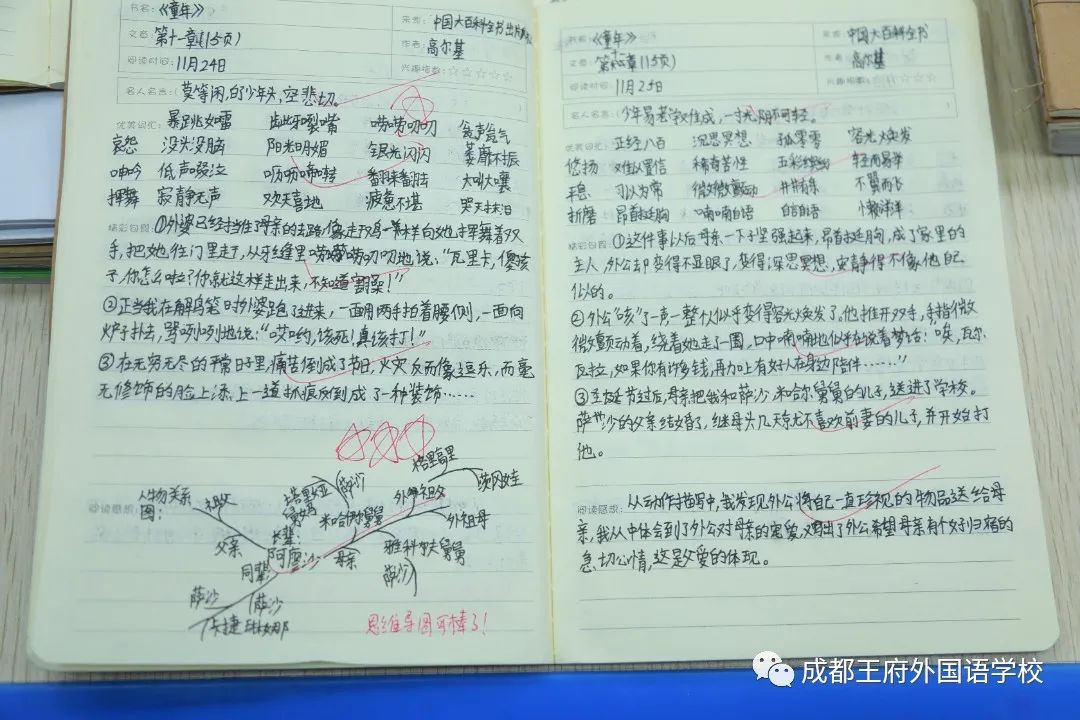 书名:《童年》
来源: 中国大百科全书出版社
文章: 第十一章(15页)
作者: 高尔基
阅读时间: 11月24日
兴趣指数: ☆☆☆☆☆
名人名言: (莫等闲,白了少年头,空悲切。
优美词汇: 暴跳如雷 龇牙咧嘴 唠唠叨叨
哀怨 没头没脑 阳光明媚 银光闪闪 萎靡不振
呻吟 低声啜泣 大叫大嚷
挥舞 寂静无声 欢天喜地 疲惫不甚 哭天抹泪
精彩句段: ①外婆已经挡住母亲的去路,像走鸡一样样向她,挥舞着双
手,把她往门里走了,从牙缝里唠唠叨叨地说:“瓦里卡,傻孩
子,你怎么啦?你就这样走出来,不知道害臊!”
②正当我在解鸟笼时外婆跑了过来,一面用两手拍着腰侧,一面向
炉子扑去,骂咧咧地说:“哎哟,该死!真该打!”
③在无穷无尽的平常日子里,痛苦倒成了节日,火灾反而像逗乐,而毫
无修饰的脸上添上一道抓痕反倒成了一种装饰……
阅读感想:
人物关系
图:
祖父
父亲
舅妈
萨沙
米哈伊尔舅舅
外曾祖父
外祖母
长辈:
阿廖沙
母亲
雅科夫舅舅
萨沙
同辈:
萨沙
萨沙
卡捷琳娜
思维导图可棒了!
书名:《童年》
来源: 中国大百科全书
文章: (15页)
作者: 高尔基
阅读时间: 11月25日
兴趣指数: ☆☆☆☆☆
名人名言: 少年易老学难成,一寸光阴不可轻。
优美词汇: 正经八百 沉思冥想 孤零零 容光焕发
悠扬 难以置信 稀奇古怪 五彩缤纷 轻而易举
平息 习以为常 微微颤动 井井有条 不翼而飞
折磨 昂首挺胸 喃喃自语 自言自语 懒洋洋
精彩句段: ①这件事以后母亲一下子坚强起来,昂首挺胸,成了家里的
主人,外公却变得不显眼了,变得沉思冥想,安静得不像他自己
似的。
②外公“咳”了一声,整个人似乎变得容光焕发了。他推开双手,手指微微
微颤动着,绕着她走了一圈,口中喃喃地似乎在说着梦话:“唉,瓦尔
瓦拉,如果你有许多钱,再加上有好人在身边陪伴……”
③圣诞节过后,母亲把我和萨沙,米哈尔舅舅的儿子,送进了学校。
萨沙的父亲结婚了,继母头几天就不喜欢前妻的儿子,并开始打
他。
阅读感想: 从动作描写中,我发现外公将自己一直珍视的物品送给母
亲,我从中体会到了外公对母亲的宠爱,写出了外公希望母亲有个好归宿的
急切心情,这是父爱的体现。
成都王府外国语学校